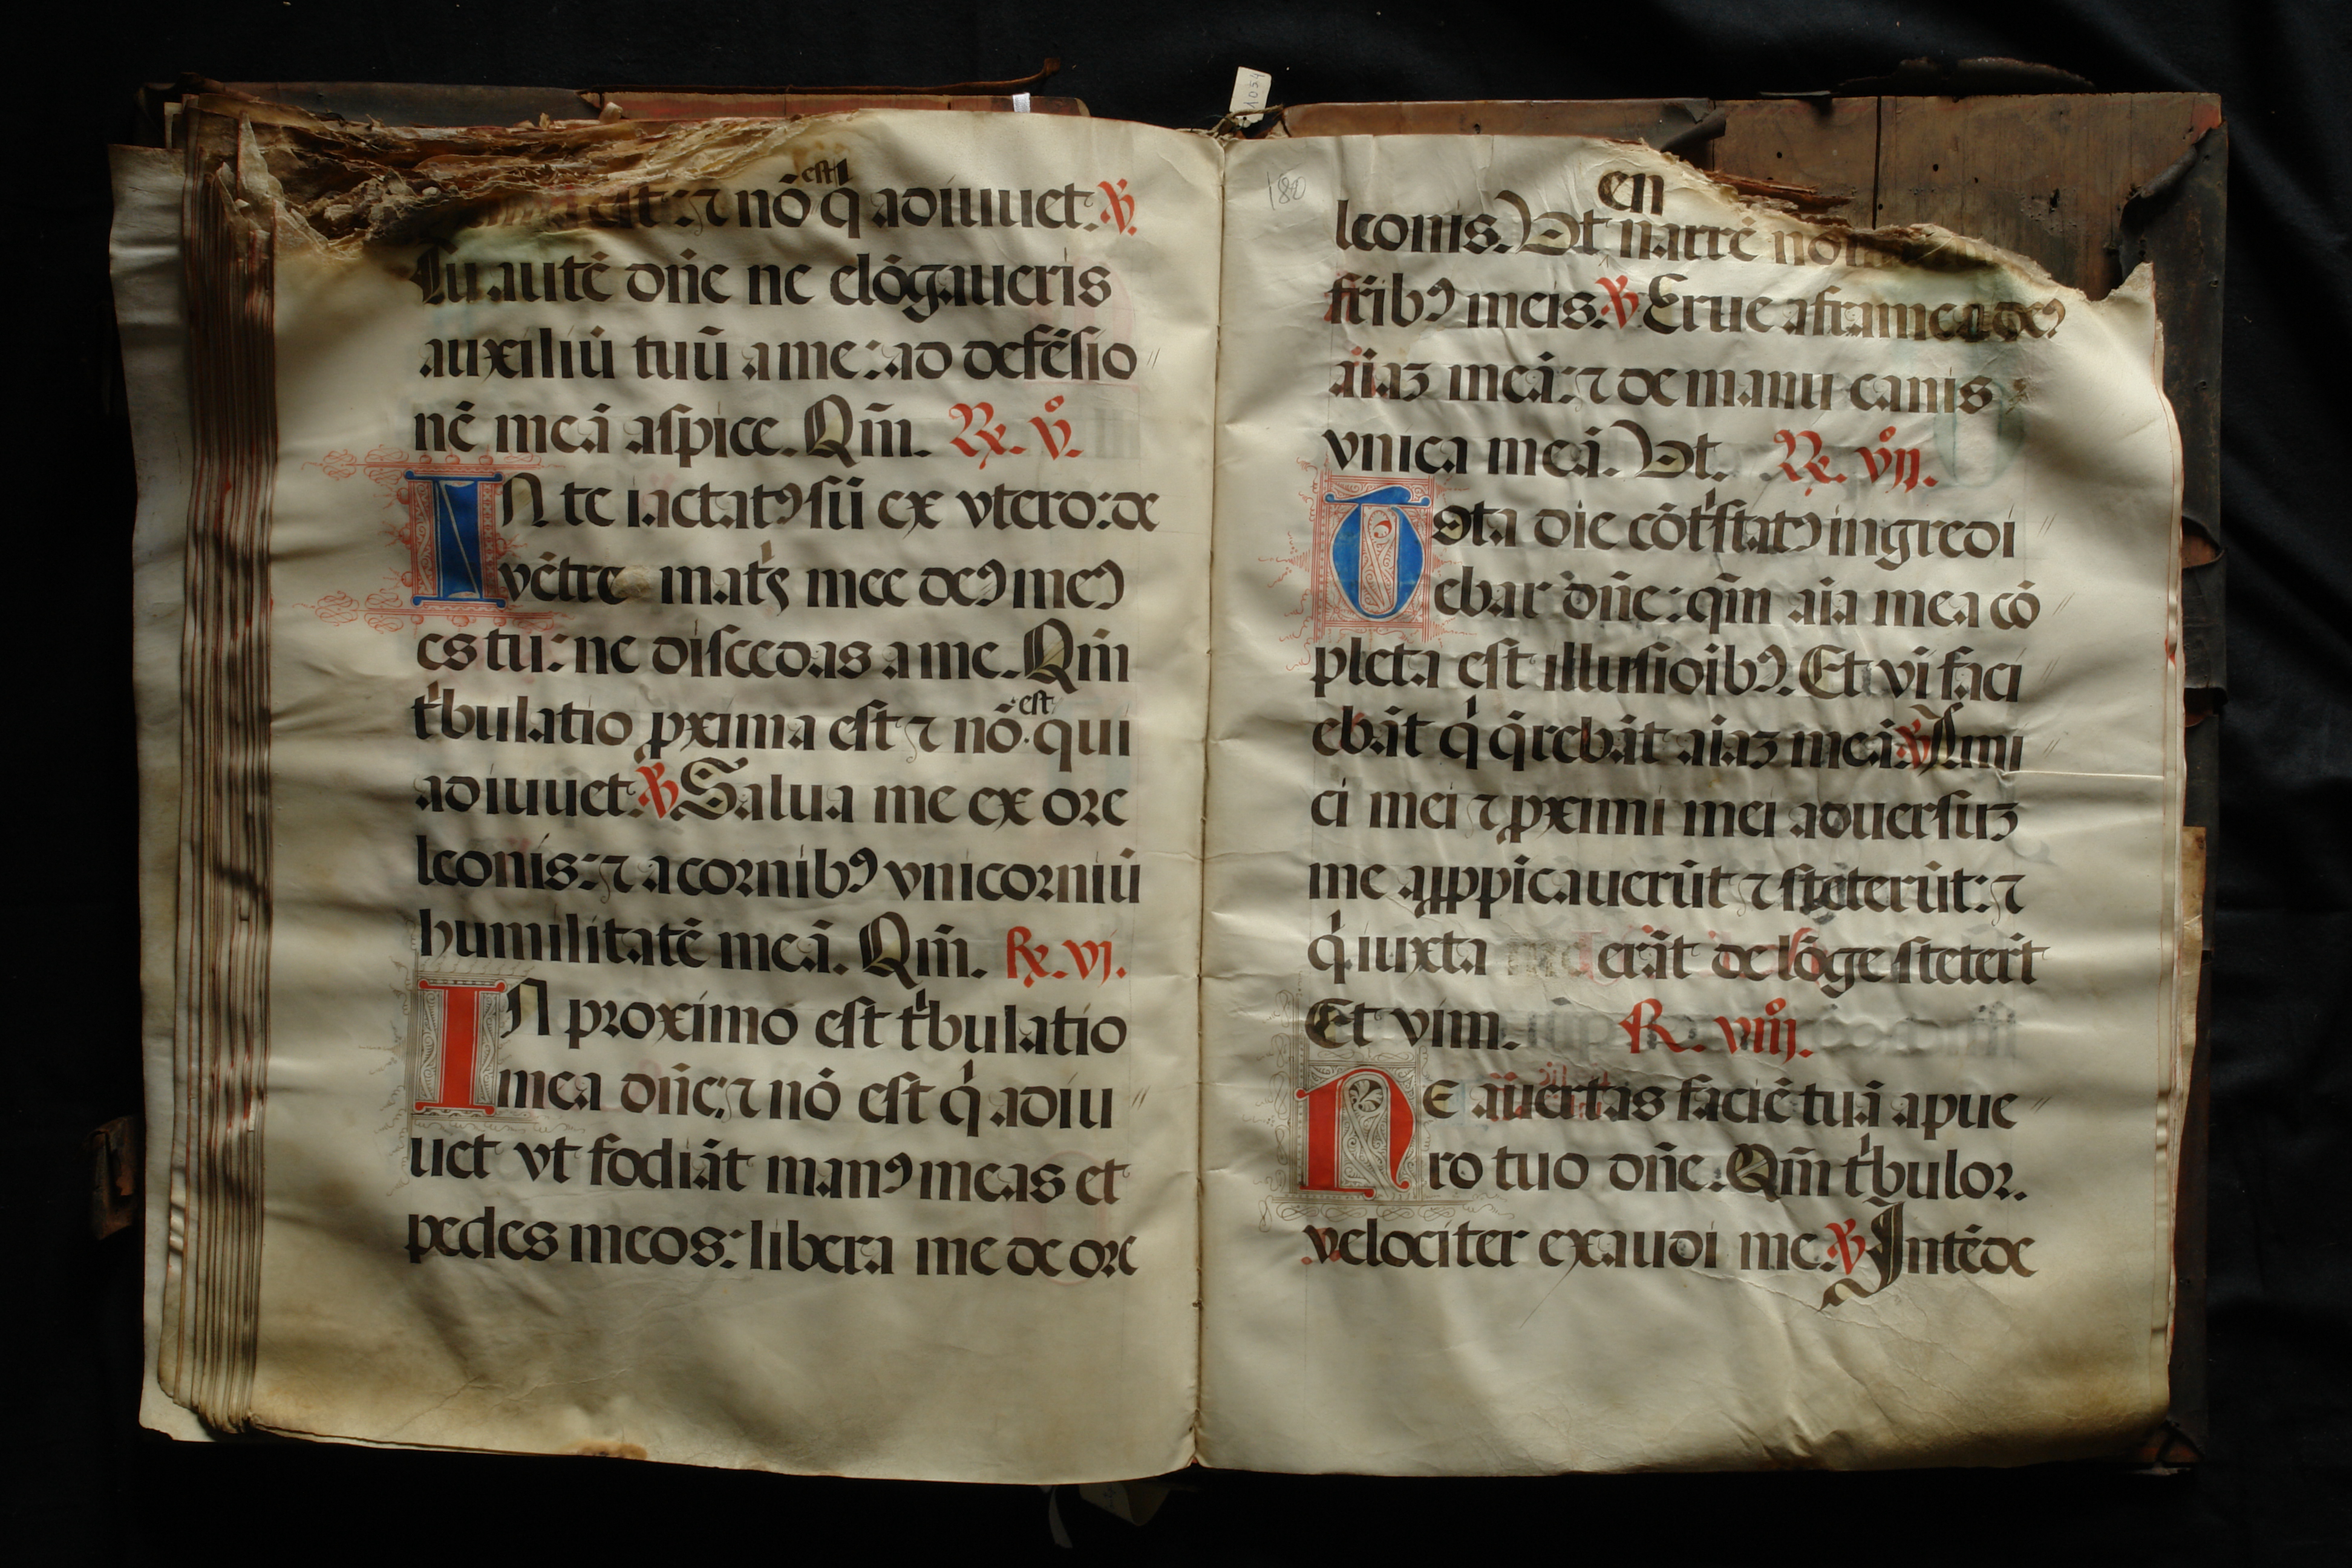 est
est: ⁊ nō q̇ adiuuet. ℣.
Tu autē dn̄e ne elōgaueris
auxiliū tuū a me: ad defēsio
nē meā aspice. Qm̄. ℟. v̊.
IN te iactatꝰ sū ex vtero: de
vētre matˢ mee deꝰ meꝰ
es tu: ne discedas a me. Qm̄
tͥbulatio ꝓxima est ⁊ nō est qui
adiuuet. ℣. Salua me ex ore
leonis: ⁊ a cornibꝰ vnicorniū
humilitatē meā. Qm̄. ℟. vj.
IN proximo est tͥbulatio
mea dn̄e: ⁊ nō est qͥ adiu
uet vt fodiāt manꝰ meas et
pedes meos: libera me de ore
1054
180
en
leonis. Vt narrē
fr̄ibꝰ meis. ℣. Erue a framea deꝰ
aīaʒ meā: ⁊ de manu canis
vnicā meā. Vt. ℟. vij̊.
Tota die cōtͥstatꝰ ingredi
ebar dn̄e: qm̄ aīa mea cō
pleta est illusioībꝰ. Et vī faci
ebāt qͥ q̄rebāt aīaʒ meā. ℣. Ami
ci mei ⁊ ꝓximi mei aduersuʒ
me appꝓpīcauerūt ⁊ steterūt: ⁊
qͥ iuxta me erāt de lōge stetert̄
Et vim. ℟. viij̊.
NE auertas faciē tuā a pue
ro tuo dn̄e. Qm̄ tͥbulor.
velociter exaudi me. ℣. Intēde